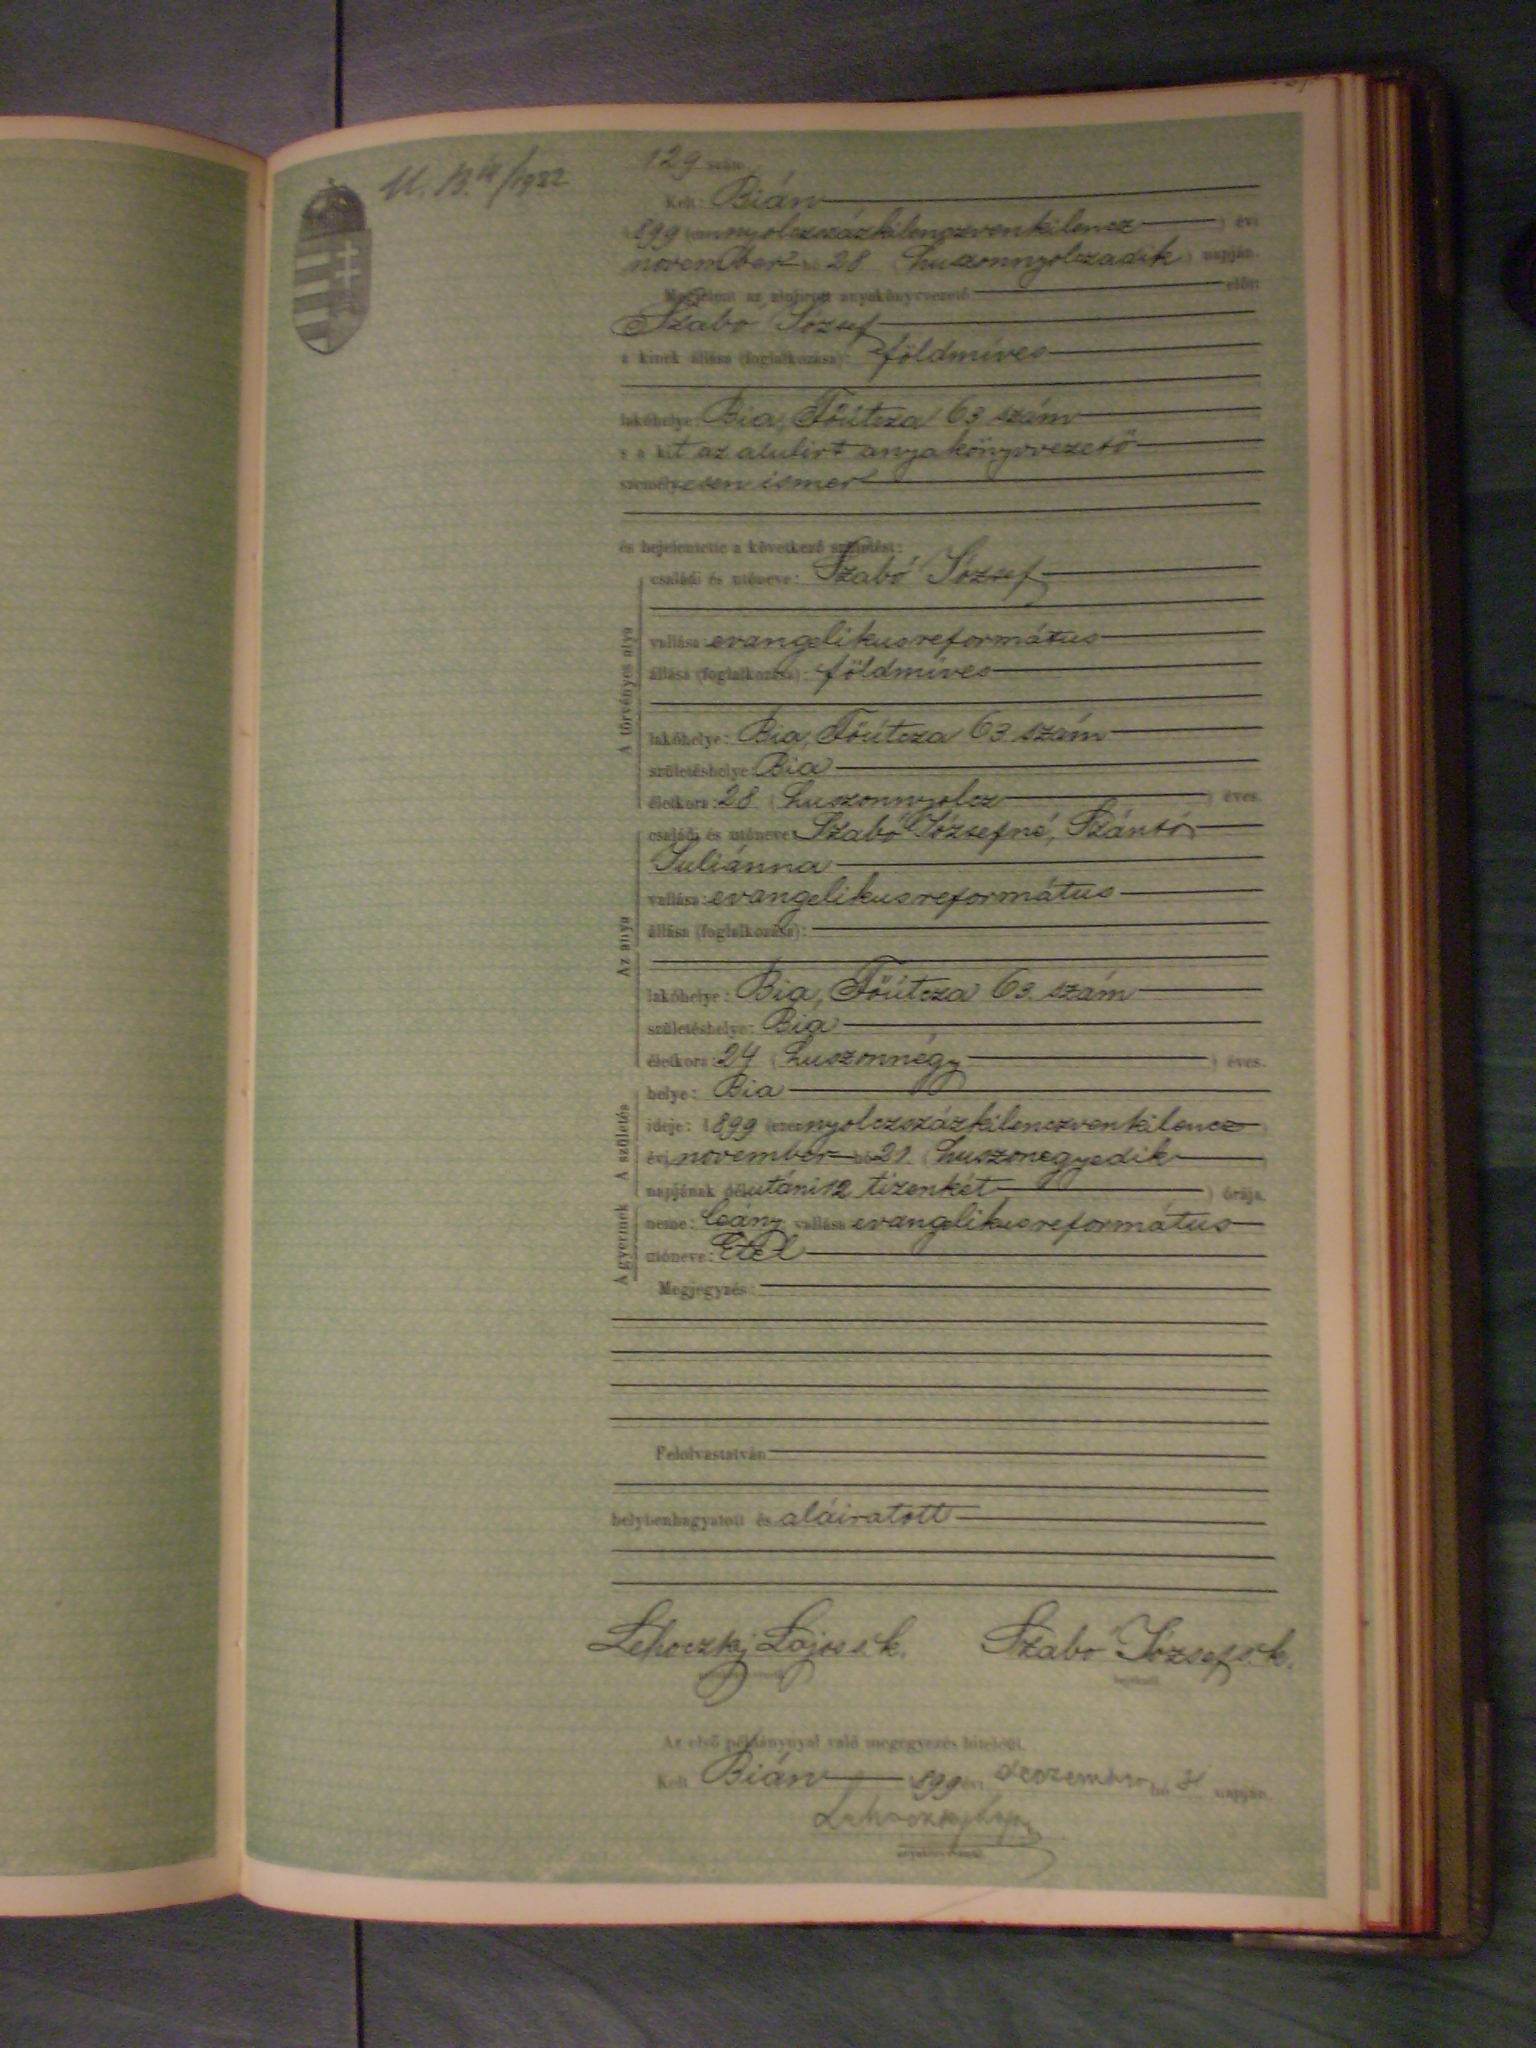 129 szám.
Kelt: Bián
1899 (ezernyolczszázkilenczvenkilencz) évi
november hó 28 (huszonnyolczadik) napján.
Megjelent az alulírott anyakönyvvezető előtt
Szabó József
a kinek állása (foglalkozása): földmíves
lakóhelye: Bia, Főútcza 63 szám
s a kit az alulirt anyakönyvvezető
személyesen ismer
és bejelentette a következő születést:
A törvényes atya
családi és utóneve: Szabó József
vallása: evangelikusreformátus
állása (foglalkozása): földmíves
lakóhelye: Bia, Főútcza 63 szám
születéshelye: Bia
életkora: 28 (huszonnyolcz) éves.
Az anya
családi és utóneve: Szabó Józsefné, Szántó
Juliánna
vallása: evangelikusreformátus
állása (foglalkozása):
lakóhelye: Bia, Főútcza 63. szám
születéshelye: Bia
életkora: 24 (huszonnégy) éves.
A születés
helye: Bia
ideje: 1899 (ezernyolczszázkilenczvenkilencz)
évi november hó 21. (huszonegyedik)
napjának délutáni 12 (tizenkét) órája.
A gyermek
neme: leány vallása: evangelikusreformátus
utóneve: Etel
Megjegyzés:
Felolvastatván
helybenhagyatott és aláiratott
Lehoczky Lajos s. k. Szabó József s. k.
Az első példánynyal való megegyezés hiteléül.
Kelt Bián 1899 évi deczember hó 31 napján.
Lehoczky Lajos
anyakönyvvezető